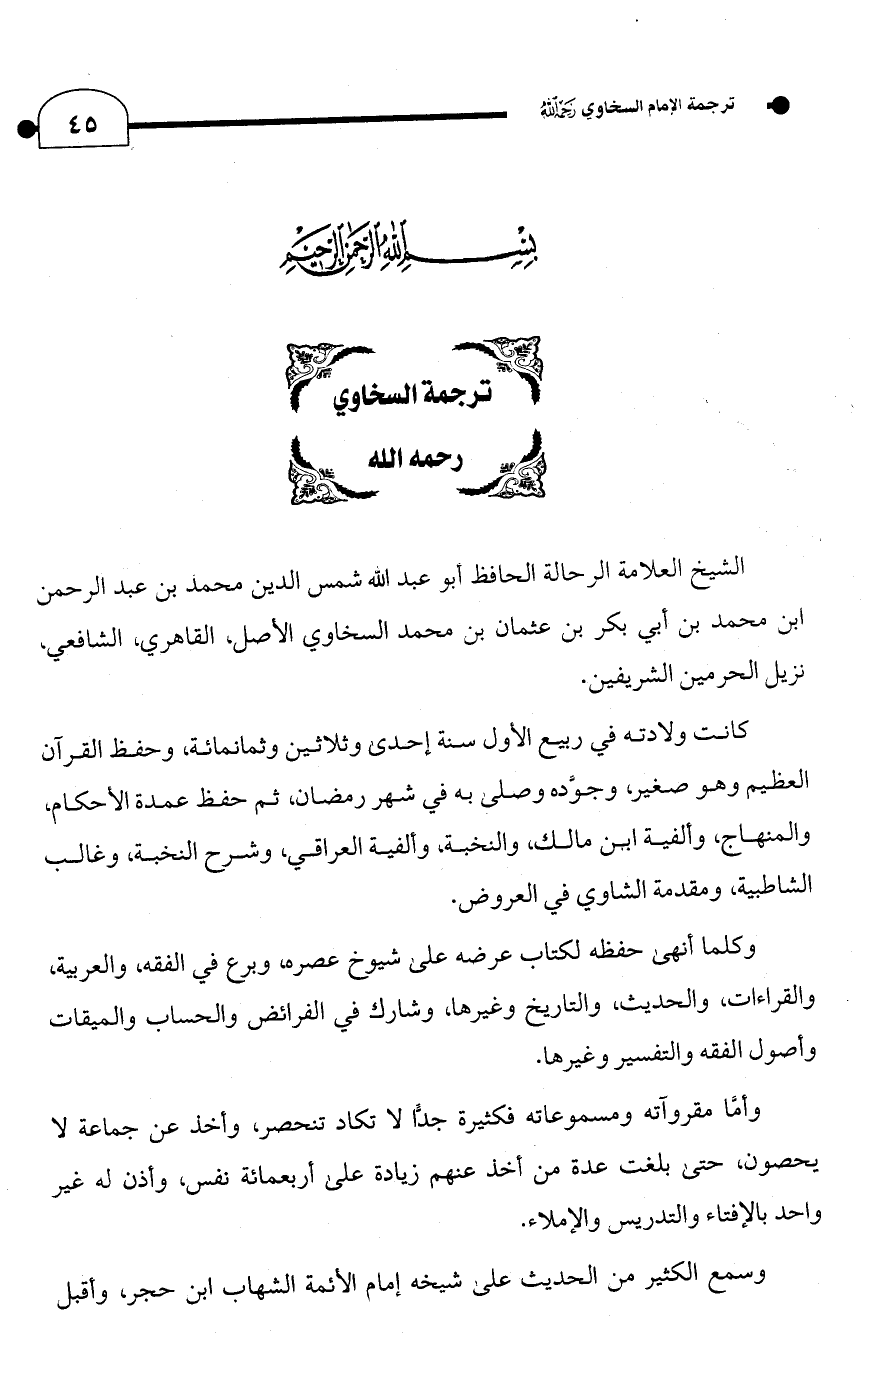 ترجمة الإمام السخاوي رَحِمَهُ اللهُ
٤٥
بِسْمِ اللهِ الرَّحْمَٰنِ الرَّحِيمِ
ترجمة السخاوي
رحمه الله
الشيخ العلامة الرحالة الحافظ أبو عبد الله شمس الدين محمد بن عبد الرحمن
ابن محمد بن أبي بكر بن عثمان بن محمد السخاوي الأصل، القاهري، الشافعي،
نزيل الحرمين الشريفين.
كانت ولادته في ربيع الأول سنة إحدى وثلاثين وثمانمائة، وحفظ القرآن
العظيم وهو صغير، وجوَّده وصلى به في شهر رمضان، ثم حفظ عمدة الأحكام،
والمنهاج، وألفية ابن مالك، والنخبة، وألفية العراقي، وشرح النخبة، وغالب
الشاطبية، ومقدمة الشاوي في العروض.
وكلما أنهى حفظه لكتاب عرضه على شيوخ عصره، وبرع في الفقه، والعربية،
والقراءات، والحديث، والتاريخ وغيرها، وشارك في الفرائض والحساب والميقات
وأصول الفقه والتفسير وغيرها.
وأمَّا مقروآته ومسموعاته فكثيرة جدًّا لا تكاد تنحصر، وأخذ عن جماعة لا
يحصون، حتى بلغت عدة من أخذ عنهم زيادة على أربعمائة نفس، وأذن له غير
واحد بالإفتاء والتدريس والإملاء.
وسمع الكثير من الحديث على شيخه إمام الأئمة الشهاب ابن حجر، وأقبل